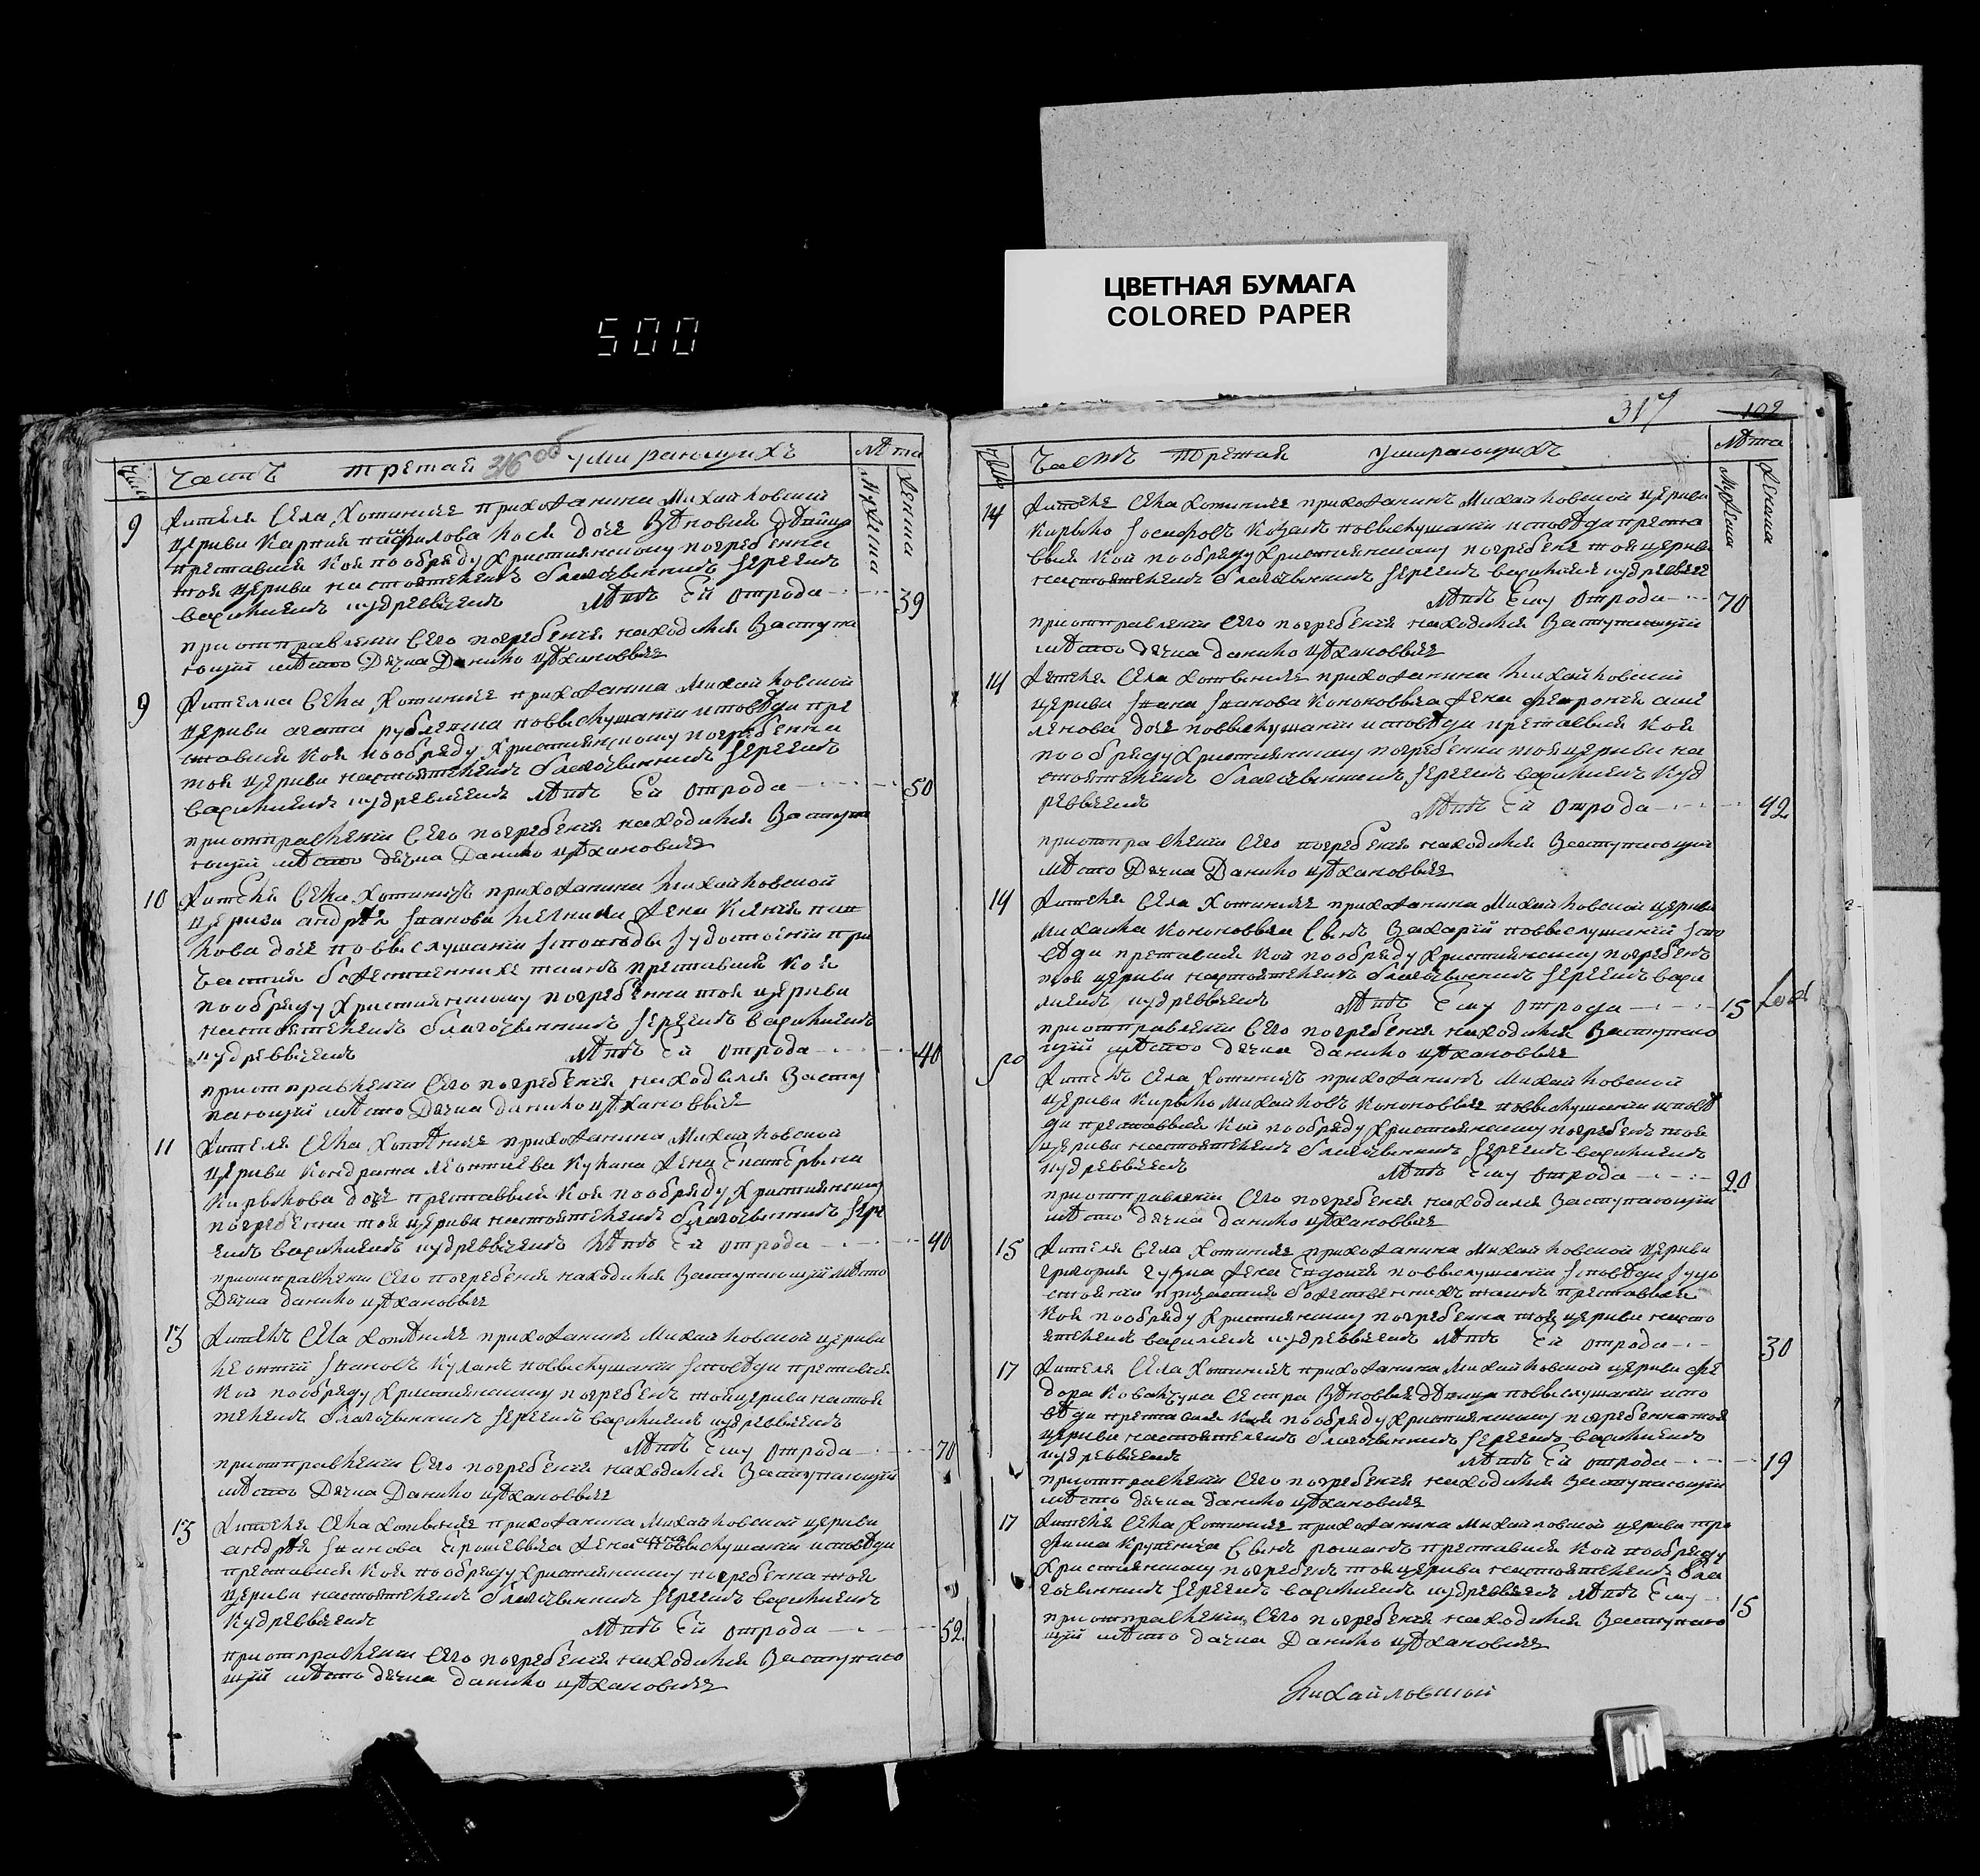 ЦВЕТНАЯ БУМАГА
COLORED PAPER
500
Часть третая 316 об умирающихъ
Лѣта
Числа
Мужеска
Женска
9
Жителя Села Хотиничъ прихожанина Михайловский
церкви
дочь Зѣновия дѣвица
преставися коя по обряду християнскому погребенна
тоя церкви настоятелемъ благочиннымъ Іереемъ
Василиемъ кудревичемъ Лѣтъ Ей отрода 39
при отправлении Сего погребения находился Заступа
ющий мѣсто Дячка Данило цѣхановичъ
9
Жителка Села Хотиничъ прихожанка Михайловской
церкви агата по выслушании исповѣди пре
ставися коя по обряду християнскому погребенна
тоя церкви настоятелемъ благочиннымъ Іереемъ
Василиемъ кудревичемъ Лѣтъ Ей отрода 50
при отправлении Сего погребения находился Заступа
ющий мѣсто дячка Данило цѣхановичъ
10
Жителя Села Хотиничъ прихожанина Михайловской
церкви андрея Іванова Жена Ксения
дочь по выслушании Ісповѣди Іудостоении при
частия божественныхъ таинъ преставися коя
по обряду християнскому погребенна тоя церкви
настоятелемъ благочиннымъ Іереемъ Василиемъ
кудревичемъ Лѣтъ Ей отрода 40
при отправлении Сего погребения находился Засту
пающий мѣсто Дячка данило цѣхановичъ
11
Жителя Села Хотѣничъ прихожанина Михайловской
церкви Кондрата леонтиева Жена Екатерына
Кирылова дочь преставися коя по обряду християнскому
погребенна тоя церкви настоятелемъ благочиннымъ Іере
емъ Василиемъ кудревичемъ Лѣтъ Ей отрода 40
при отправлении Сего погребения находился Заступающий мѣсто
Дячка данило цѣхановичъ
13
Житель Села Хотѣничъ прихожанинъ Михайловской церкви
леонтий Івановъ по выслушании Ісповѣди преставися
кой по обряду християнскому погребенъ тоя церкви настоя
телемъ благочиннымъ Іереемъ Василиемъ кудревичемъ
Лѣтъ Ему отрода 70
при отправлении Сего погребения находился Заступающий
мѣсто Дячка Данило цѣхановичъ
13
Жителя Села Хотыничъ прихожанина Михайловской церкви
андрея Іванова Жена по выслушании исповѣди
преставися коя по обряду християнскому погребенна тоя
церкви настоятелемъ благочиннымъ Іереемъ Василиемъ
Кудревичемъ Лѣтъ Ей отрода 52
при отправлении Сего погребения находился Заступаю
щий мѣсто дячка данило цѣхановичъ
317
102
Часть третая умирающихъ
Лѣта
Числа
Мужеска
Женска
14
Житель Села Хотиничъ прихожанинъ Михайловской церкви
Кирыло Іосифовъ Козакъ по выслушании исповѣди преста
вися кой по обряду християнскому погребенъ тоя церкви
настоятелемъ благочиннымъ Іереемъ Василиемъ кудревиче
Лѣтъ Ему отрода 70
при отправлении Сего погребения находился Заступающий
мѣсто дячка данило цѣхановичъ
14
Жителя Села Хотыничъ прихожанина Михайловский
церкви Івана Іванова Кононовича Жена феврония
дочь по выслушании исповѣди преставися коя
по обряду християнскому погребенна тоя церкви на
стоятелемъ благочиннымъ Іереемъ Василиемъ Куд
ревичемъ Лѣтъ Ей отрода 42
при отправлении Сего погребения находился Заступающий
мѣсто Дячка Данило цѣхановичъ
14
Жителя Села Хотиничъ прихожанина Михайловской церкви
Михаила Кононовича Сынъ Захарий по выслушании Іспо
вѣди преставися кой по обряду християнскому погребенъ
тоя церкви настоятелемъ благочиннымъ Іереемъ Васи
лиемъ кудревичемъ Лѣтъ Ему отрода 15
при отправлении Сего погребения находился Заступаю
щий мѣсто дячка данило цѣхановичъ
Житель Села Хотиничъ прихожанинъ Михайловской
церкви Кирыло Михайловъ Кононовичъ по выслушании исповѣ
ди преставися кой по обряду християнскому погребенъ тоя
церкви настоятелемъ благочиннымъ Іереемъ Василиемъ
кудревичемъ Лѣтъ Ему отрода 20
при отправлении Сего погребения находился Заступающий
мѣсто дячка данило цѣхановичъ
15
Жителя Села Хотиничъ прихожанина Михайловской церкви
григория Жена Евдокия по выслушании Ісповѣди Іудо
стоении причастия божественныхъ таинъ преставися
коя по обряду християнскому погребенна тоя церкви насто
ятелемъ Василиемъ кудревичемъ Лѣтъ Ей отрода 30
17
Жителя Села Хотиничъ прихожанина Михайловской церкви фе
дора Ковальчука Сестра Зѣновия дѣвица по выслушании испо
вѣди преставися коя по обряду християнскому погребенна тоя
церкви настоятелемъ благочиннымъ Іереемъ Василиемъ
кудревичемъ Лѣтъ Ей отрода 19
при отправлении Сего погребения находился Заступающий
мѣсто дячка данило цѣхановичъ
17
Жителя Села Хотиничъ прихожанина Михайловской церкви тро
фима Крупенича Сынъ романъ преставися кой по обряду
християнскому погребенъ тоя церкви настоятелемъ бла
гочиннымъ Іереемъ Василиемъ кудревичемъ Лѣтъ Ему 15
при отправлении Сего погребения находился Заступаю
щий мѣсто дячка Данило цѣхановичъ
Михайловской